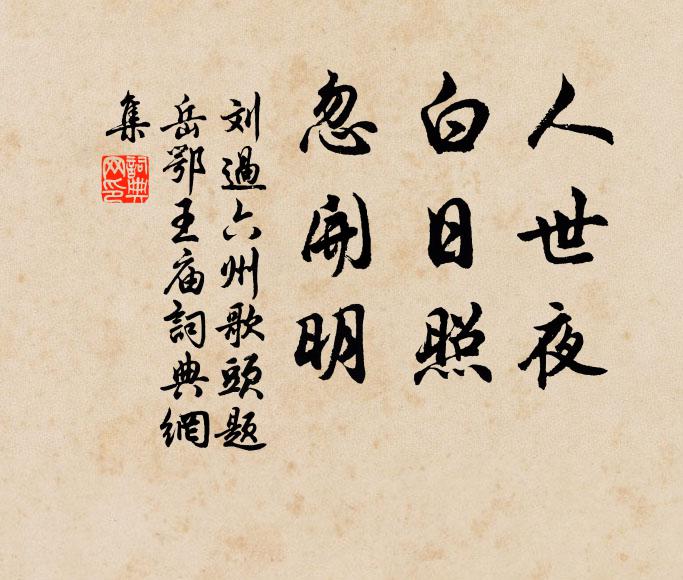 人世夜
白日照
忽開明
刘過六州歌頭題
岳鄂王庙詞典網
集
詞典網印